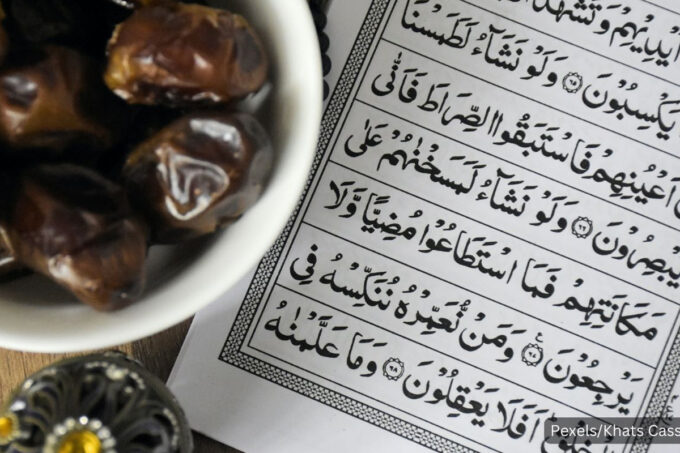 اَيْدِيْهِمْ وَتَشْهَدُ
يَكْسِبُوْنَ ۝٦٥ وَلَوْ نَشَآءُ لَطَمَسْنَا
اَعْيُنِهِمْ فَاسْتَبَقُوا الصِّرَاطَ فَاَنّٰى
يُبْصِرُوْنَ ۝٦٦ وَلَوْ نَشَآءُ لَمَسَخْنٰهُمْ عَلٰى
مَكَانَتِهِمْ فَمَا اسْتَطَاعُوْا مُضِيًّا وَّلَا
يَرْجِعُوْنَ ۝٦٧ وَمَنْ نُّعَمِّرْهُ نُنَكِّسْهُ فِى
الْخَلْقِ اَفَلَا يَعْقِلُوْنَ ۝٦٨ وَمَا عَلَّمْنٰهُ
Pexels/Khats Cass